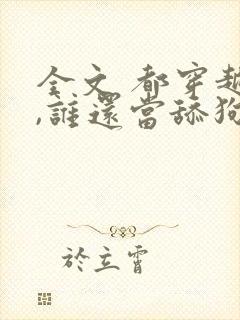 全文 都穿越
,誰還當舔狗
於立霄